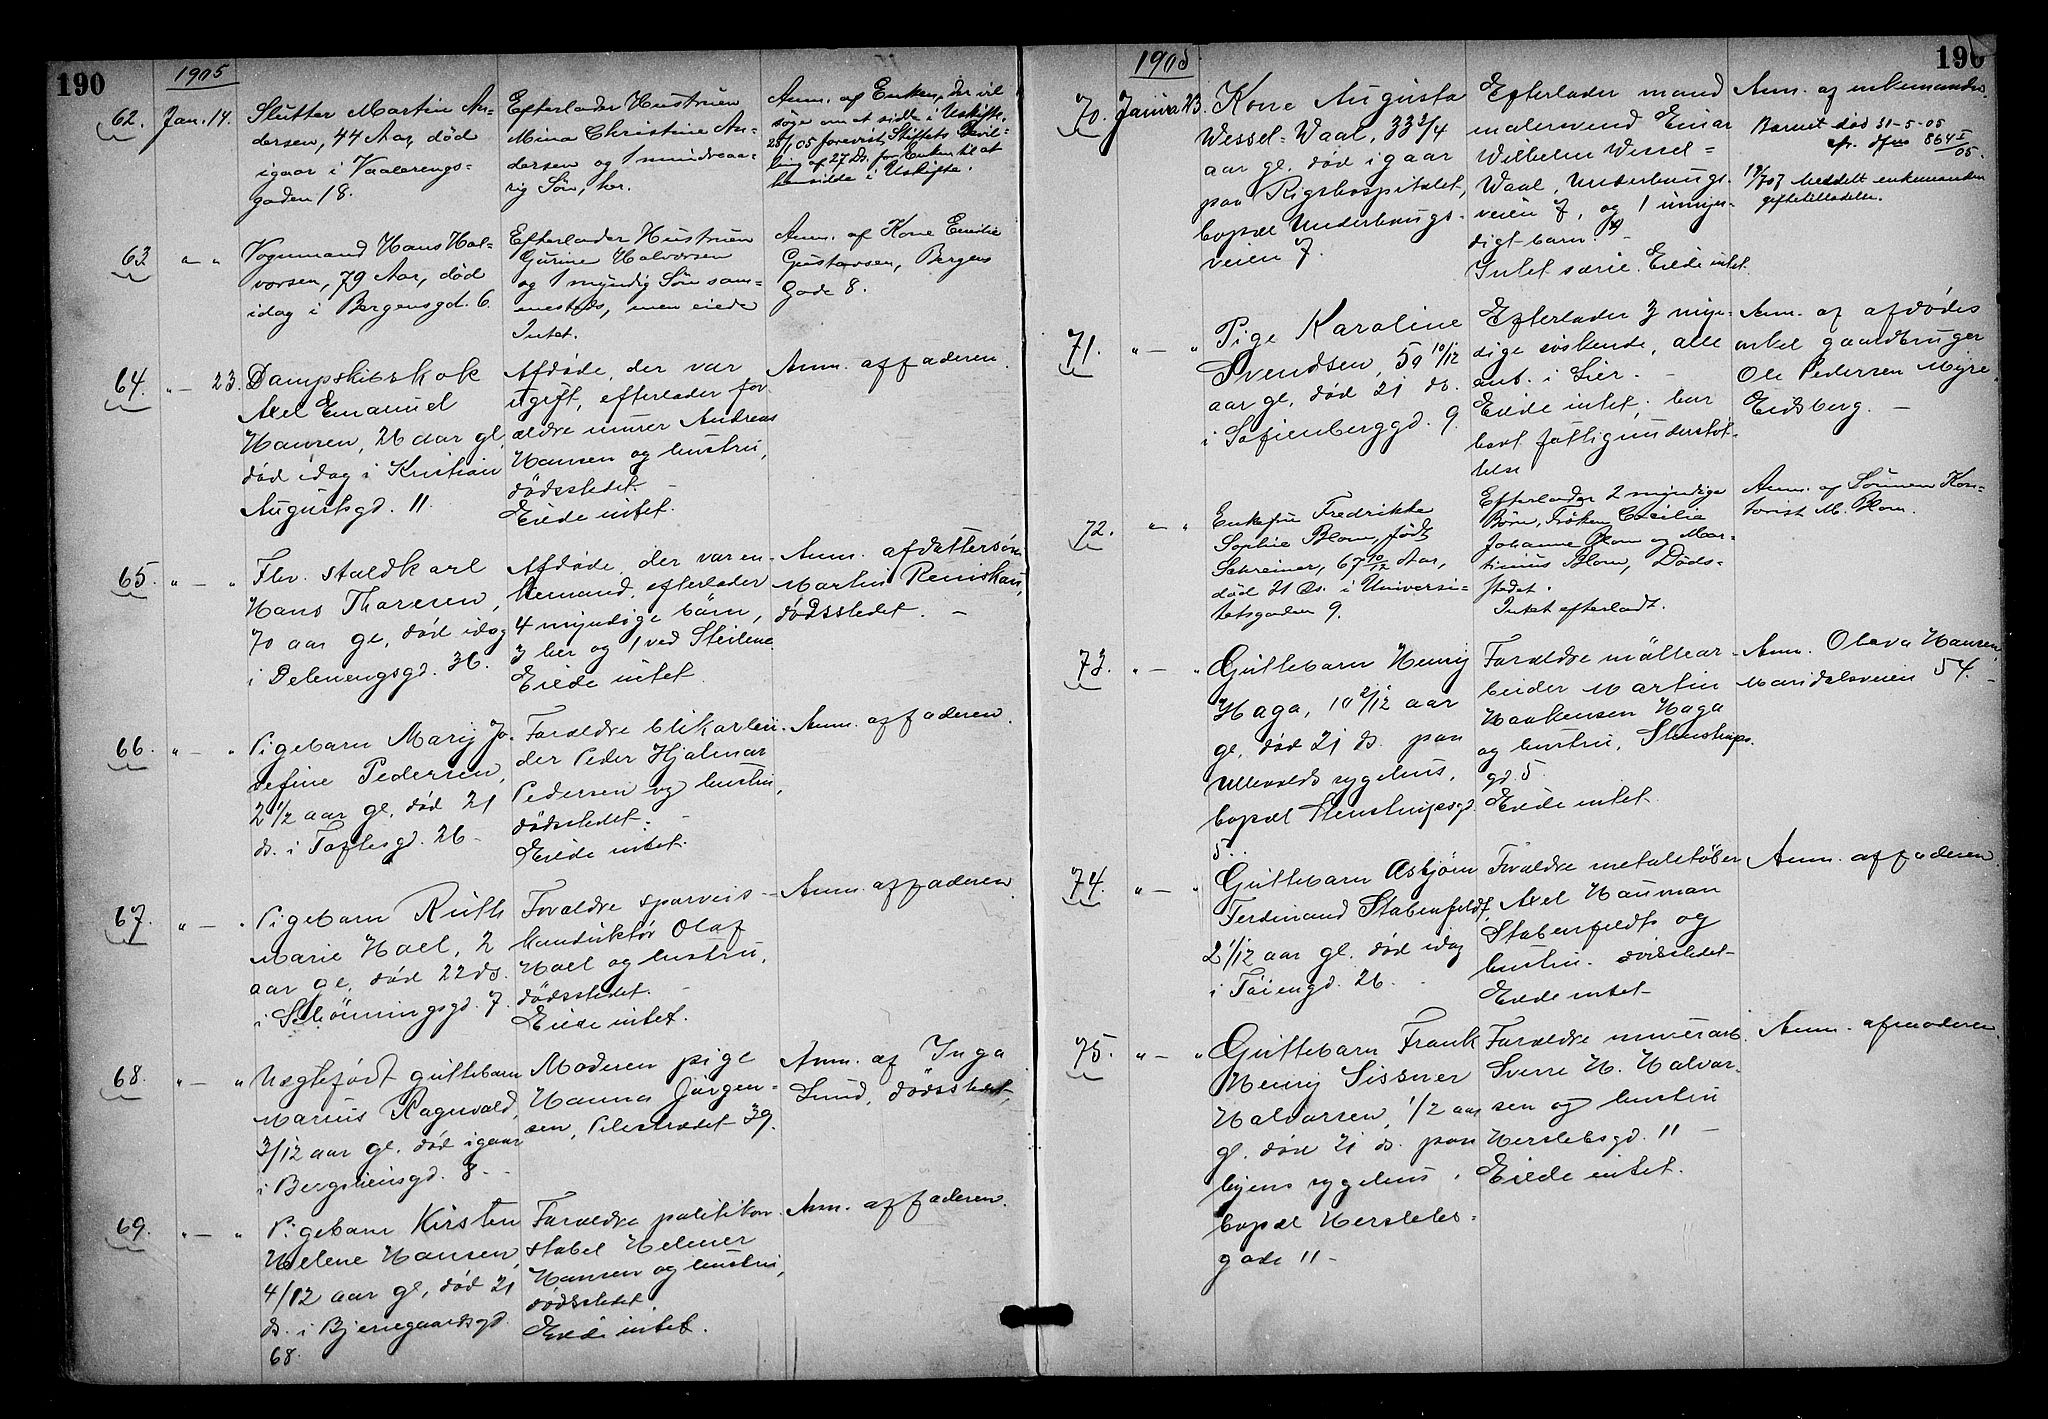 190
1905
62. Jan. 14.
Slutter Martin An-
dersen, 44 Aar, død
igaar i Vaalerengs-
gaden 18.
Efterlader Hustruen
Mina Christine An-
dersen og 1 mindreaa-
rig Søn, her.
Anm. af Enken, der vil
søge om at sidde i Uskifte.
28/1 05 forevist Stiftets Bevil-
ling af 27 Ds. for Enken til at
hensidde i Uskifte.
63 " "
Vognmand Hans Hal-
vorsen, 79 Aar, død
idag i Bergensgd. 6
Efterlader Hustruen
Gurine Halvorsen
og 1 myndig Søn sam-
mesteds, men eiede
Intet.
Anm. af Kone Emilie
Gustavsen, Bergens
Gade 8.
64. " — 23.
Dampskibskok
Axel Emanuel
Hansen, 26 aar gl,
død idag i Kristian
Augustsgd. 11.
Afdøde, der var
ugift, efterlader for-
ældre murer Andreas
Hansen og hustru,
dødsstedet. —
Eiede intet.
Anm. af faderen.
65. " — "
Fhv. staldkarl
Hans Thoresen,
70 aar gl, død idag
i Delenengsgd. 36.
Afdøde, der var en-
kemand, efterlader
4 myndige børn,
3 her og 1 ved Steilene
Eiede intet.
Anm. af dattersøn
Martin
dødsstedet. —
66. " — "
Pigebarn Mary Jo-
sefine Pedersen,
2 1/2 aar gl, død 21
ds. i Toftesgd. 26 -
Forældre blikarbei-
der Peder Hjalmar
Pedersen og hustru,
dødsstedet. —
Eiede intet.
Anm. af faderen.
67. " — "
Pigebarn Ruth
Marie Hoel, 2
aar gl, død 22 ds.
i Schönningsgd. 7.
Forældre sporveis-
konduktør Olaf
Hoel og hustru,
dødsstedet. —
Eiede intet.
Anm. af faderen.
68. " — "
Uægtefødt guttebarn
Marius Ragnvald,
3/12 aar gl, død igaar
i Bergslunsgd. 8. -
Moderen pige
Hanna Jørgen-
sen, Pilestrædet 39.
Anm. af Inga
Lund, dødsstedet,
69. " — "
Pigebarn Kirsten
Helene Hansen,
4/12 aar gl, død 21
ds. i Bjerregaardsgd.
68.
Forældre politikon-
stabel Helmer
Hansen og hustru,
dødsstedet.
Eiede intet.
Anm. af faderen.
190
1905
70. Januar 23.
Kone Augusta
Wessel-Waal, 33 3/4
aar gl, død igaar
paa Rigshospitalet,
bopæl Underhaugs-
veien 7.
Efterlader mand
malersvend Einar
Wilhelm Wessel-
Waal, Underhaugs-
veien 7, og 1 umyn-
digt barn.
Intet særeie. Eiede intet.
Anm. af enkemanden.
Barnet død 31-5-05
cfr. dfm 864 I/05.
19/7 07 Meddelt enkemanden
giftetilladelse.
71. " — "
Pige Karoline
Svendsen, 59 10/12
aar gl, død 21 ds.
i Sofienberggd. 9.
Efterlader 3 myn-
dige søskende, alle
ant. i Lier. -
Eiede intet; har
havt fattigunderstøt-
telse
Anm. af afdødes
onkel gaardbruger
Ole Pedersen Myre,
Eidsberg. —
72. " "
Enkefru Fredrikke
Sophie Blom, født
Schreiner, 67 10/12 Aar,
død 21 Ds. i Universi-
tetsgaden 9.
Efterlader 2 myndige
Børn, Frøken Cecilia
Johanne Blom og Mar-
tinius Blom, Døds-
stedet.
Intet efterladt.
Anm. af Sønnen Kon-
torist M. Blom.
73. " — "
Guttebarn Henry
Haga, 10 2/12 aar
gl, død 21 ds. paa
Ullevolds sygehus,
bopæl Stenstrupsgd.
5.
Forældre møllear-
beider Martin
Haakensen Haga
og hustru, Stenstrups-
gd. 5.
Eiede intet.
Anm. Oleva Hansen,
Maridalsveien 54. -
74. " — "
Guttebarn Asbjørn
Ferdinand Stabenfeldt,
2 1/12 aar gl, død idag
i Tøiengd. 26.
Forældre metalstøber
Axel Hauman
Stabenfeldt og
hustru. dødsstedet—
Eiede intet—
Anm. af faderen
75. " — "
Guttebarn Frank
Henry Sissner
Halvorsen, 1/2 aar
gl, død 21 ds. paa
byens sygehus.
bopæl Herslebs-
gade 11 -
Forældre murerarb.
Sverre H. Halvor-
sen og hustru
Herslebsgd. 11 -
Eiede intet.
Anm. af moderen